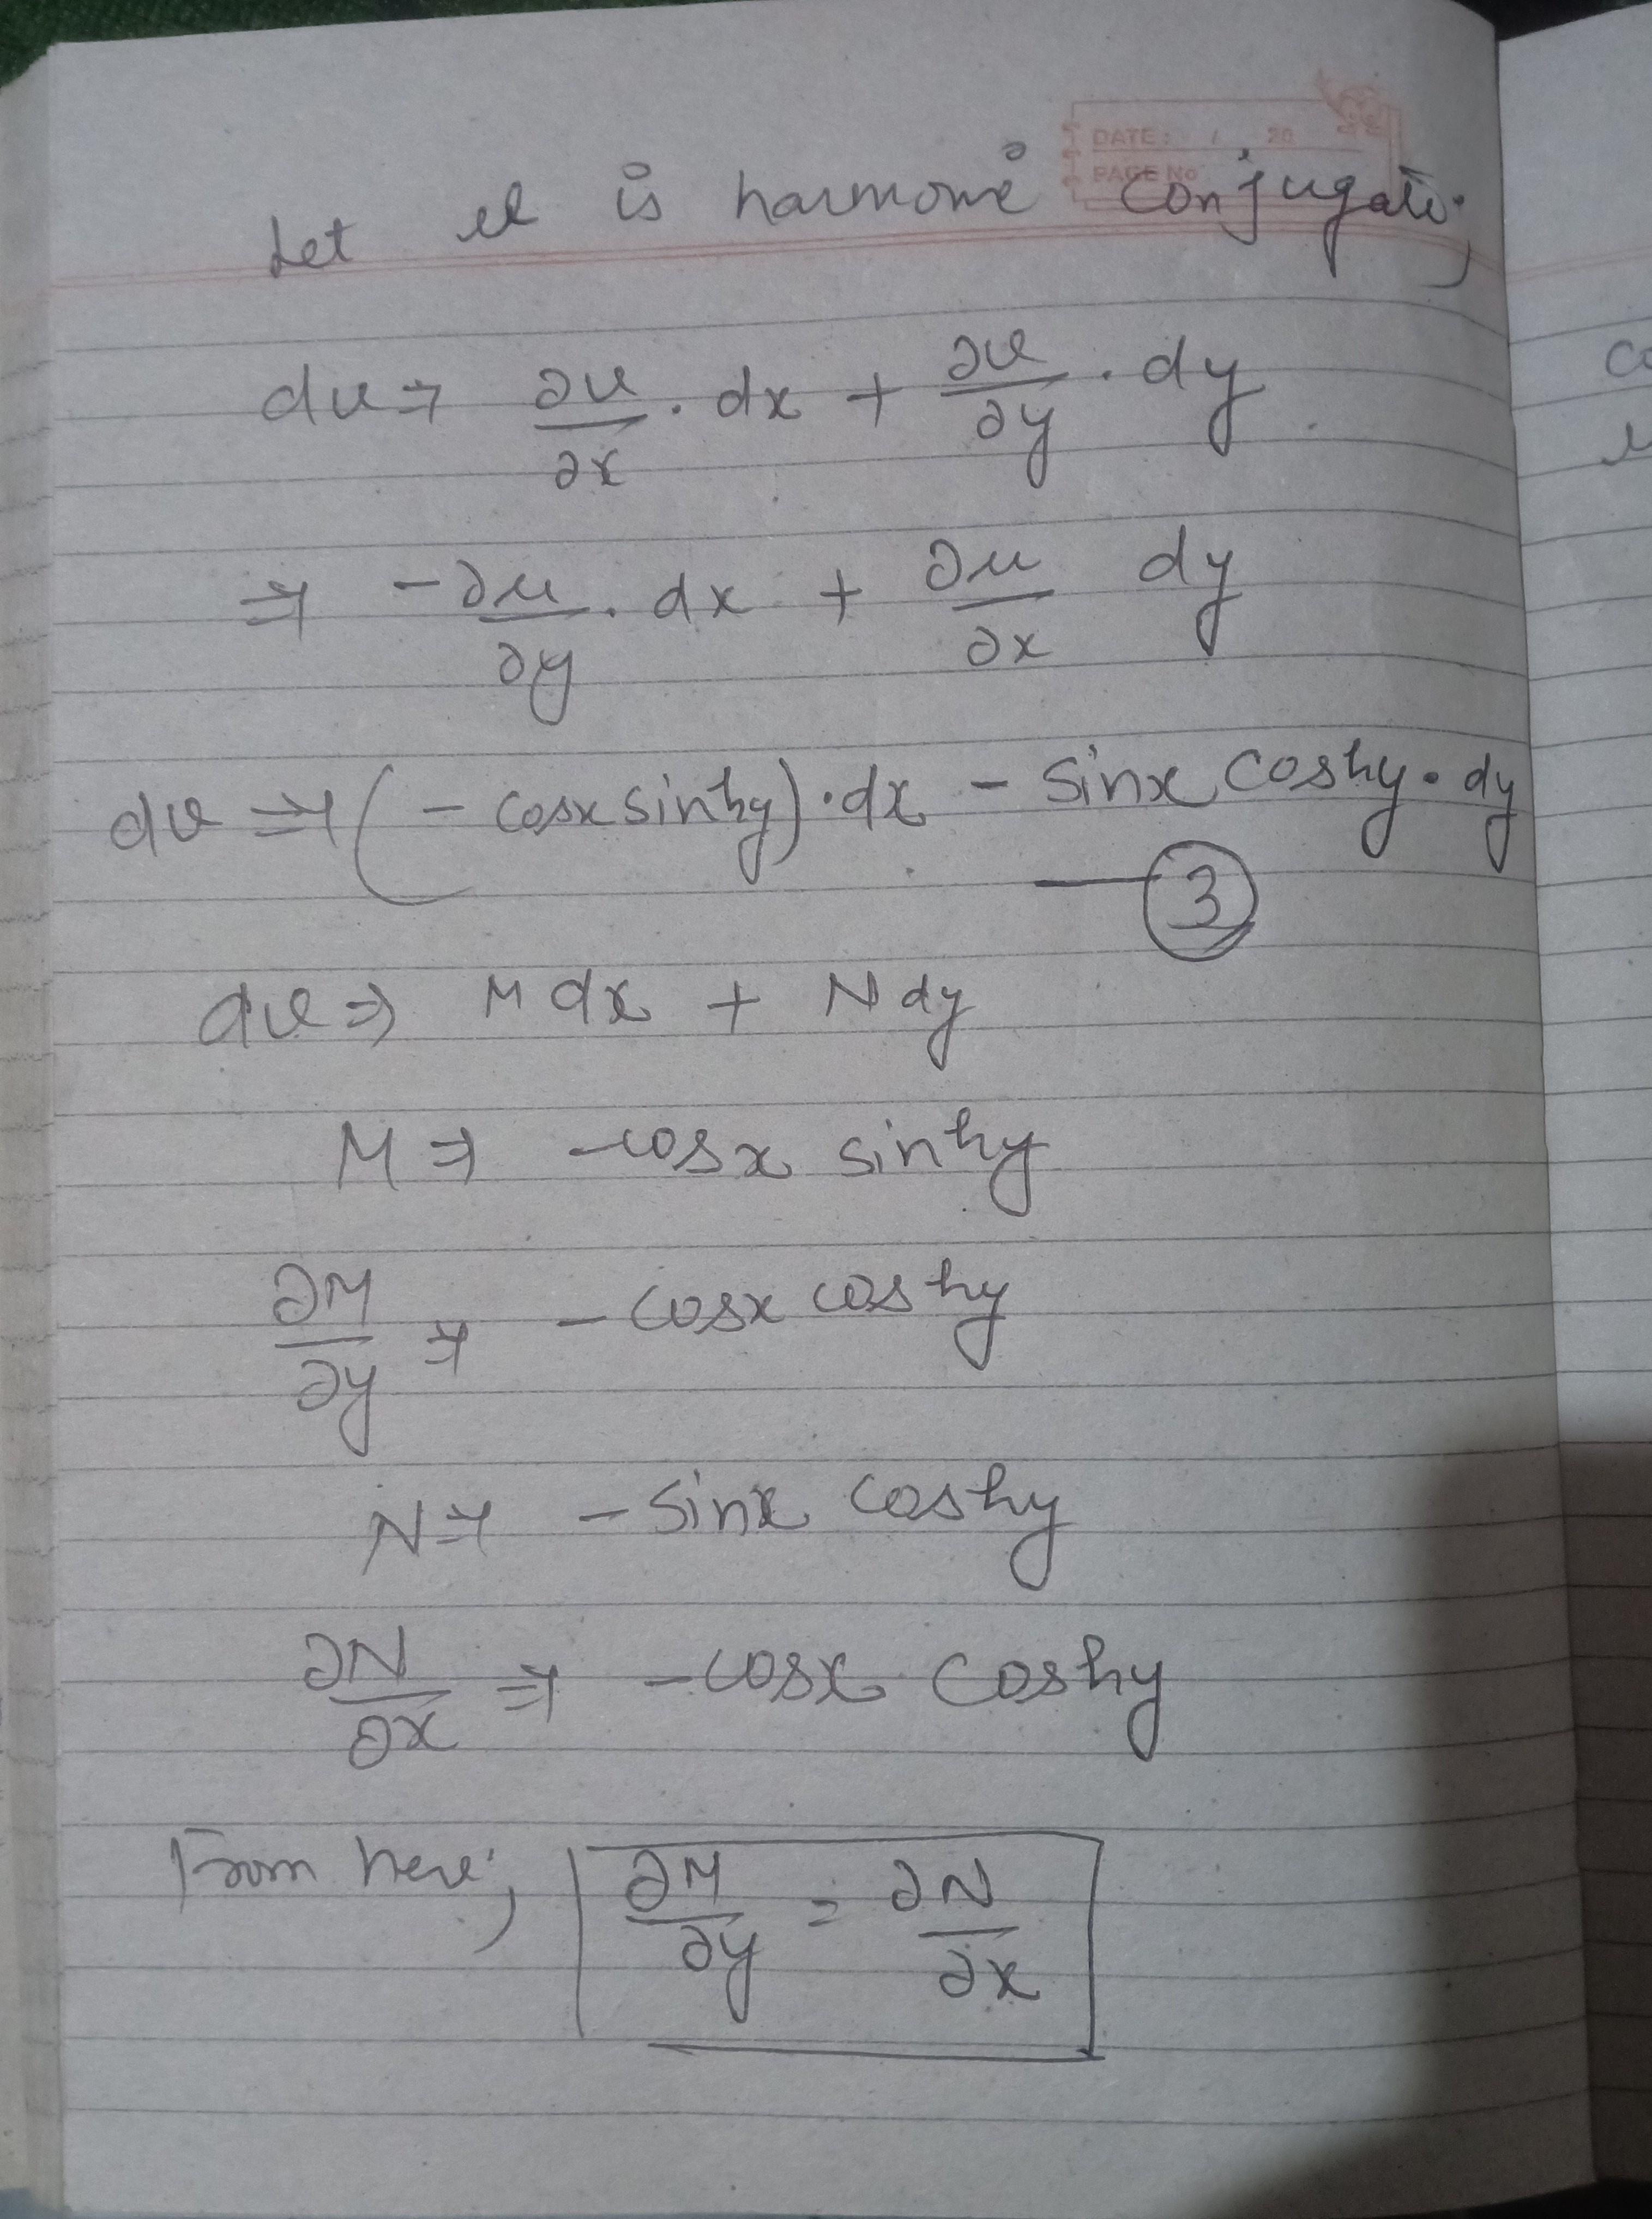 DATE: / 20
PAGE No
Let v is harmonic conjugate,
dv ⇒ ∂v/∂x · dx + ∂v/∂y · dy
⇒ -∂u/∂y · dx + ∂u/∂x dy
dv ⇒ (- cosx sinhy) · dx - sinx coshy · dy
— ③
dv ⇒ M dx + N dy
M ⇒ -cosx sinhy
∂M/∂y ⇒ - cosx coshy
N ⇒ - sinx coshy
∂N/∂x ⇒ -cosx coshy
From here, ∂M/∂y = ∂N/∂x